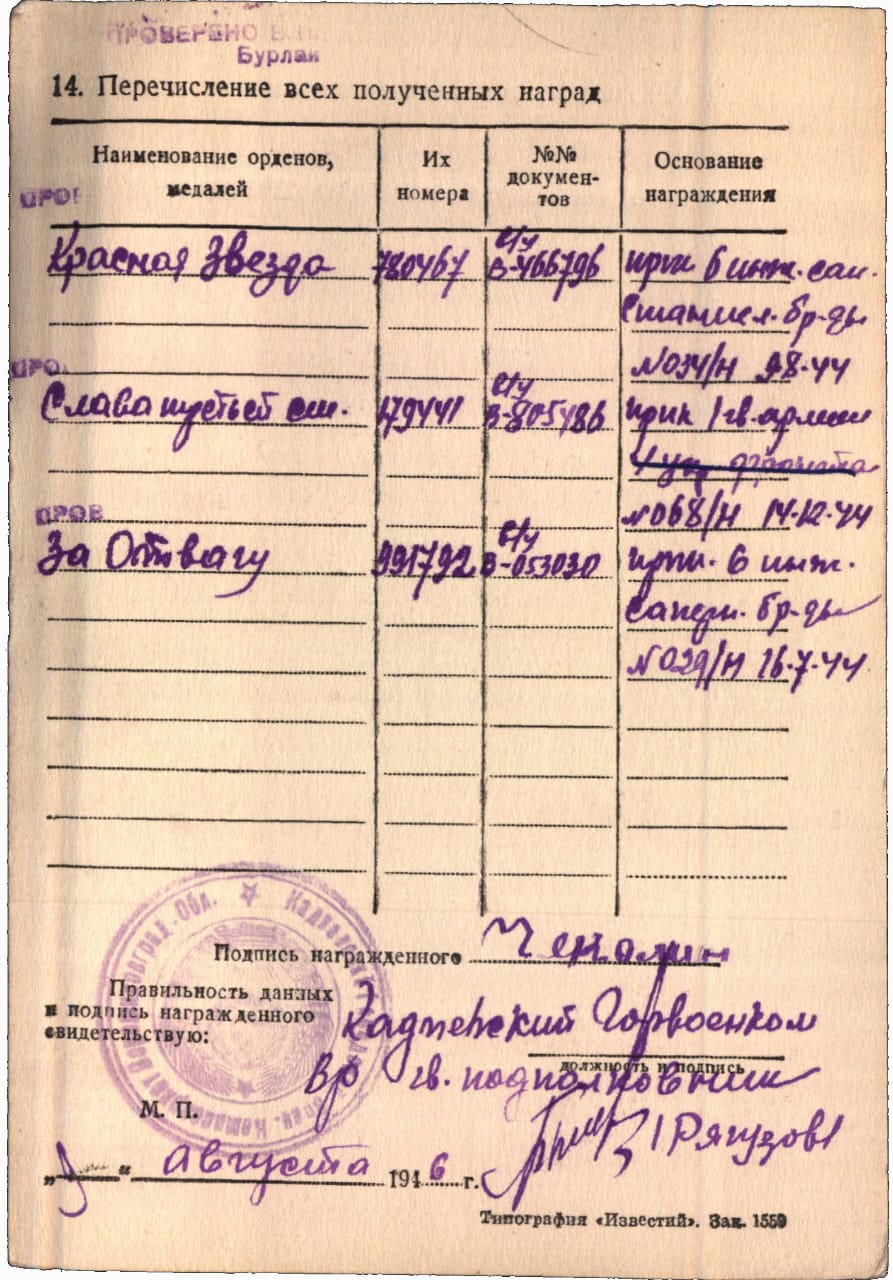 ПРОВЕРЕНО
Бурлак
14. Перечисление всех полученных наград
Наименование орденов, медалей
Их номера
№№ документов
Основание награждения
ПРОВ
Красная Звезда 780467 в/у В-466796 прик 6 инж. сап.
бр-ды
№034/Н 9-8-44
ПРО
Слава третьей ст. 179441 в/у В-805486 прик 1 гв. армии
№068/Н 14-12-44
ПРОВ
За Отвагу 991792 в/у В-053030 прик. 6 инж.
саперн. бр-ды
№029/Н 16-7-44
Подпись награжденного Чекалин
Правильность данных
и подпись награжденного
свидетельствую:
Кадиевский Горвоенком
должность и подпись
Вр гв. подполковник
М. П.
/Рягузов/
" " Августа 1946 г.
Типография «Известий». Зак. 1559